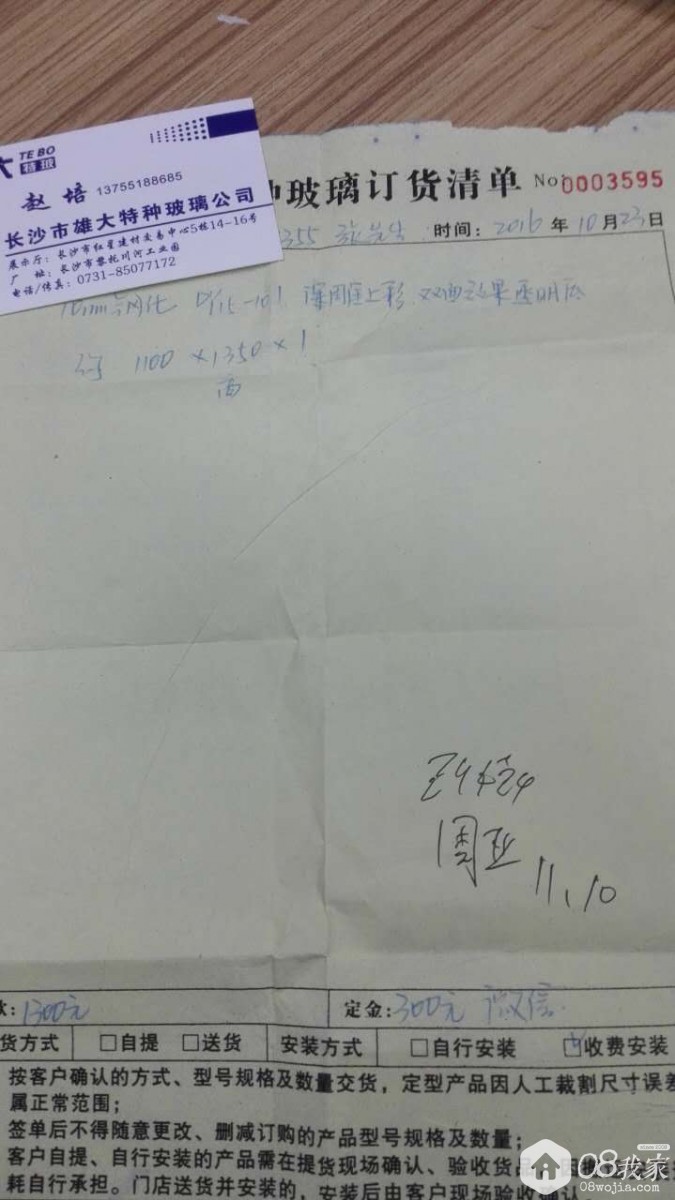 大 TE BO
特玻
赵培 13755188685
长沙市雄大特种玻璃公司
展示厅：长沙市红星建材交易中心5栋14-16号
厂 址：长沙市黎托川河工业园
电话/传真：0731-85077172
种玻璃订货清单 No: 0003595
355 张先生 时间：2016年10月23日
10mm钢化 深雕上彩 双面效果透明底
1100×1350×1
面
周亚
11.10
款：1300元 定金：300元 微信
货方式 □自提 □送货 安装方式 □自行安装 ☑收费安装
按客户确认的方式、型号规格及数量交货，定型产品因人工裁割尺寸误差
属正常范围；
签单后不得随意更改、删减订购的产品型号规格及数量；
客户自提、自行安装的产品需在提货现场确认、验收货品
耗自行承担。门店送货并安装的，安装后由客户现场验收
08我家
08wojia.com